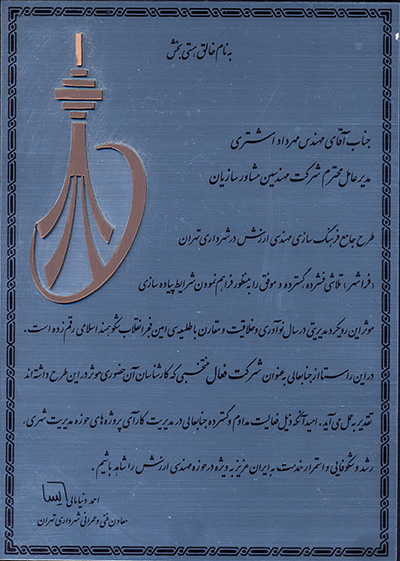 به نام خالق هستی بخش
جناب آقای مهندس مهرداد اشتری
مدیر عامل محترم شرکت مهندسین مشاور سازیان
طرح جامع فرهنگ سازی مهندسی ارزش در شهرداری تهران
(فراشهر) تلاشی فشرده، گسترده و موفق را به منظور فراهم نمودن شرایط پیاده سازی
موثر این رویکرد مدیریتی در سال نوآوری و خلاقیت و مقارن با طلیعه سی امین فجر انقلاب شکوهمند اسلامی رقم زده است.
در این راستا از جنابعالی به عنوان شرکت فعال منتخبی که کارشناسان آن حضوری موثر در این طرح داشته اند
تقدیر به عمل می آید. امید آنکه ذیل فعالیت مداوم و گسترده جنابعالی در مدیریت کارآی پروژه های حوزه مدیریت شهری،
رشد و شکوفایی و استمرار خدمت به ایران عزیز به ویژه در حوزه مهندسی ارزش را شاهد باشیم.
احمد دنیامالی
معاون فنی و عمرانی شهرداری تهران